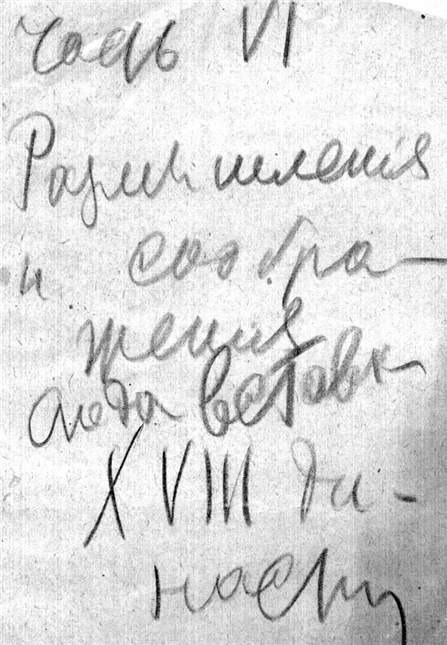 часть VI
Размышления
и сообра-
жения
вставк
XVIII ди-
насти